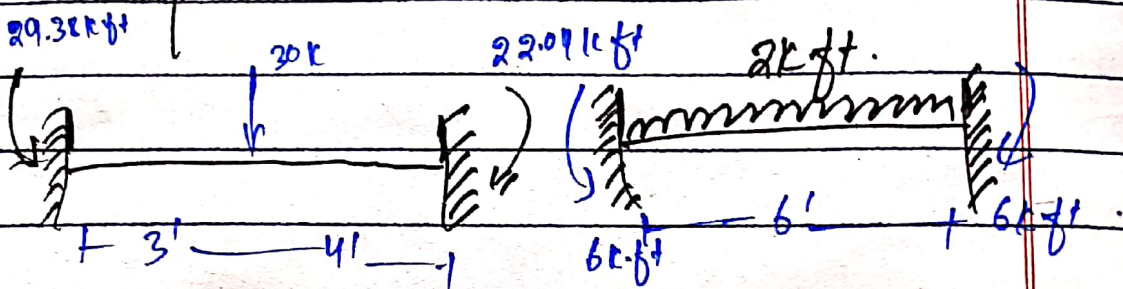 29.38k ft
30k
22.04k ft
2k ft.
3'
4'
6k.ft
6'
6k ft.